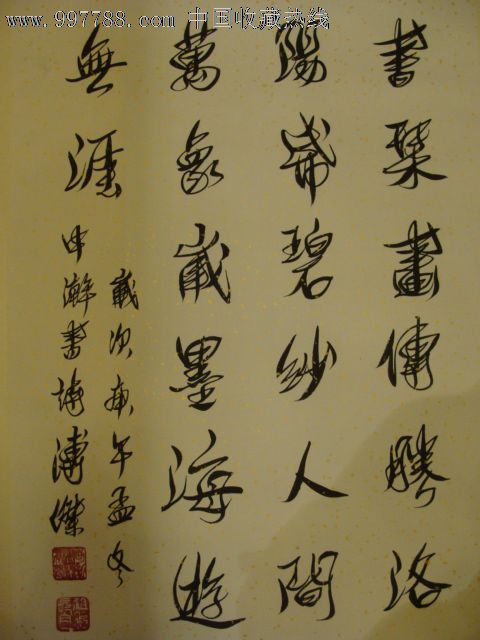 www.997788.com 中国收藏热线
書琴畫傳勝洛
陽碧紗人間
萬象墨海遊
無涯
歲次庚午孟冬
瀚書溥傑